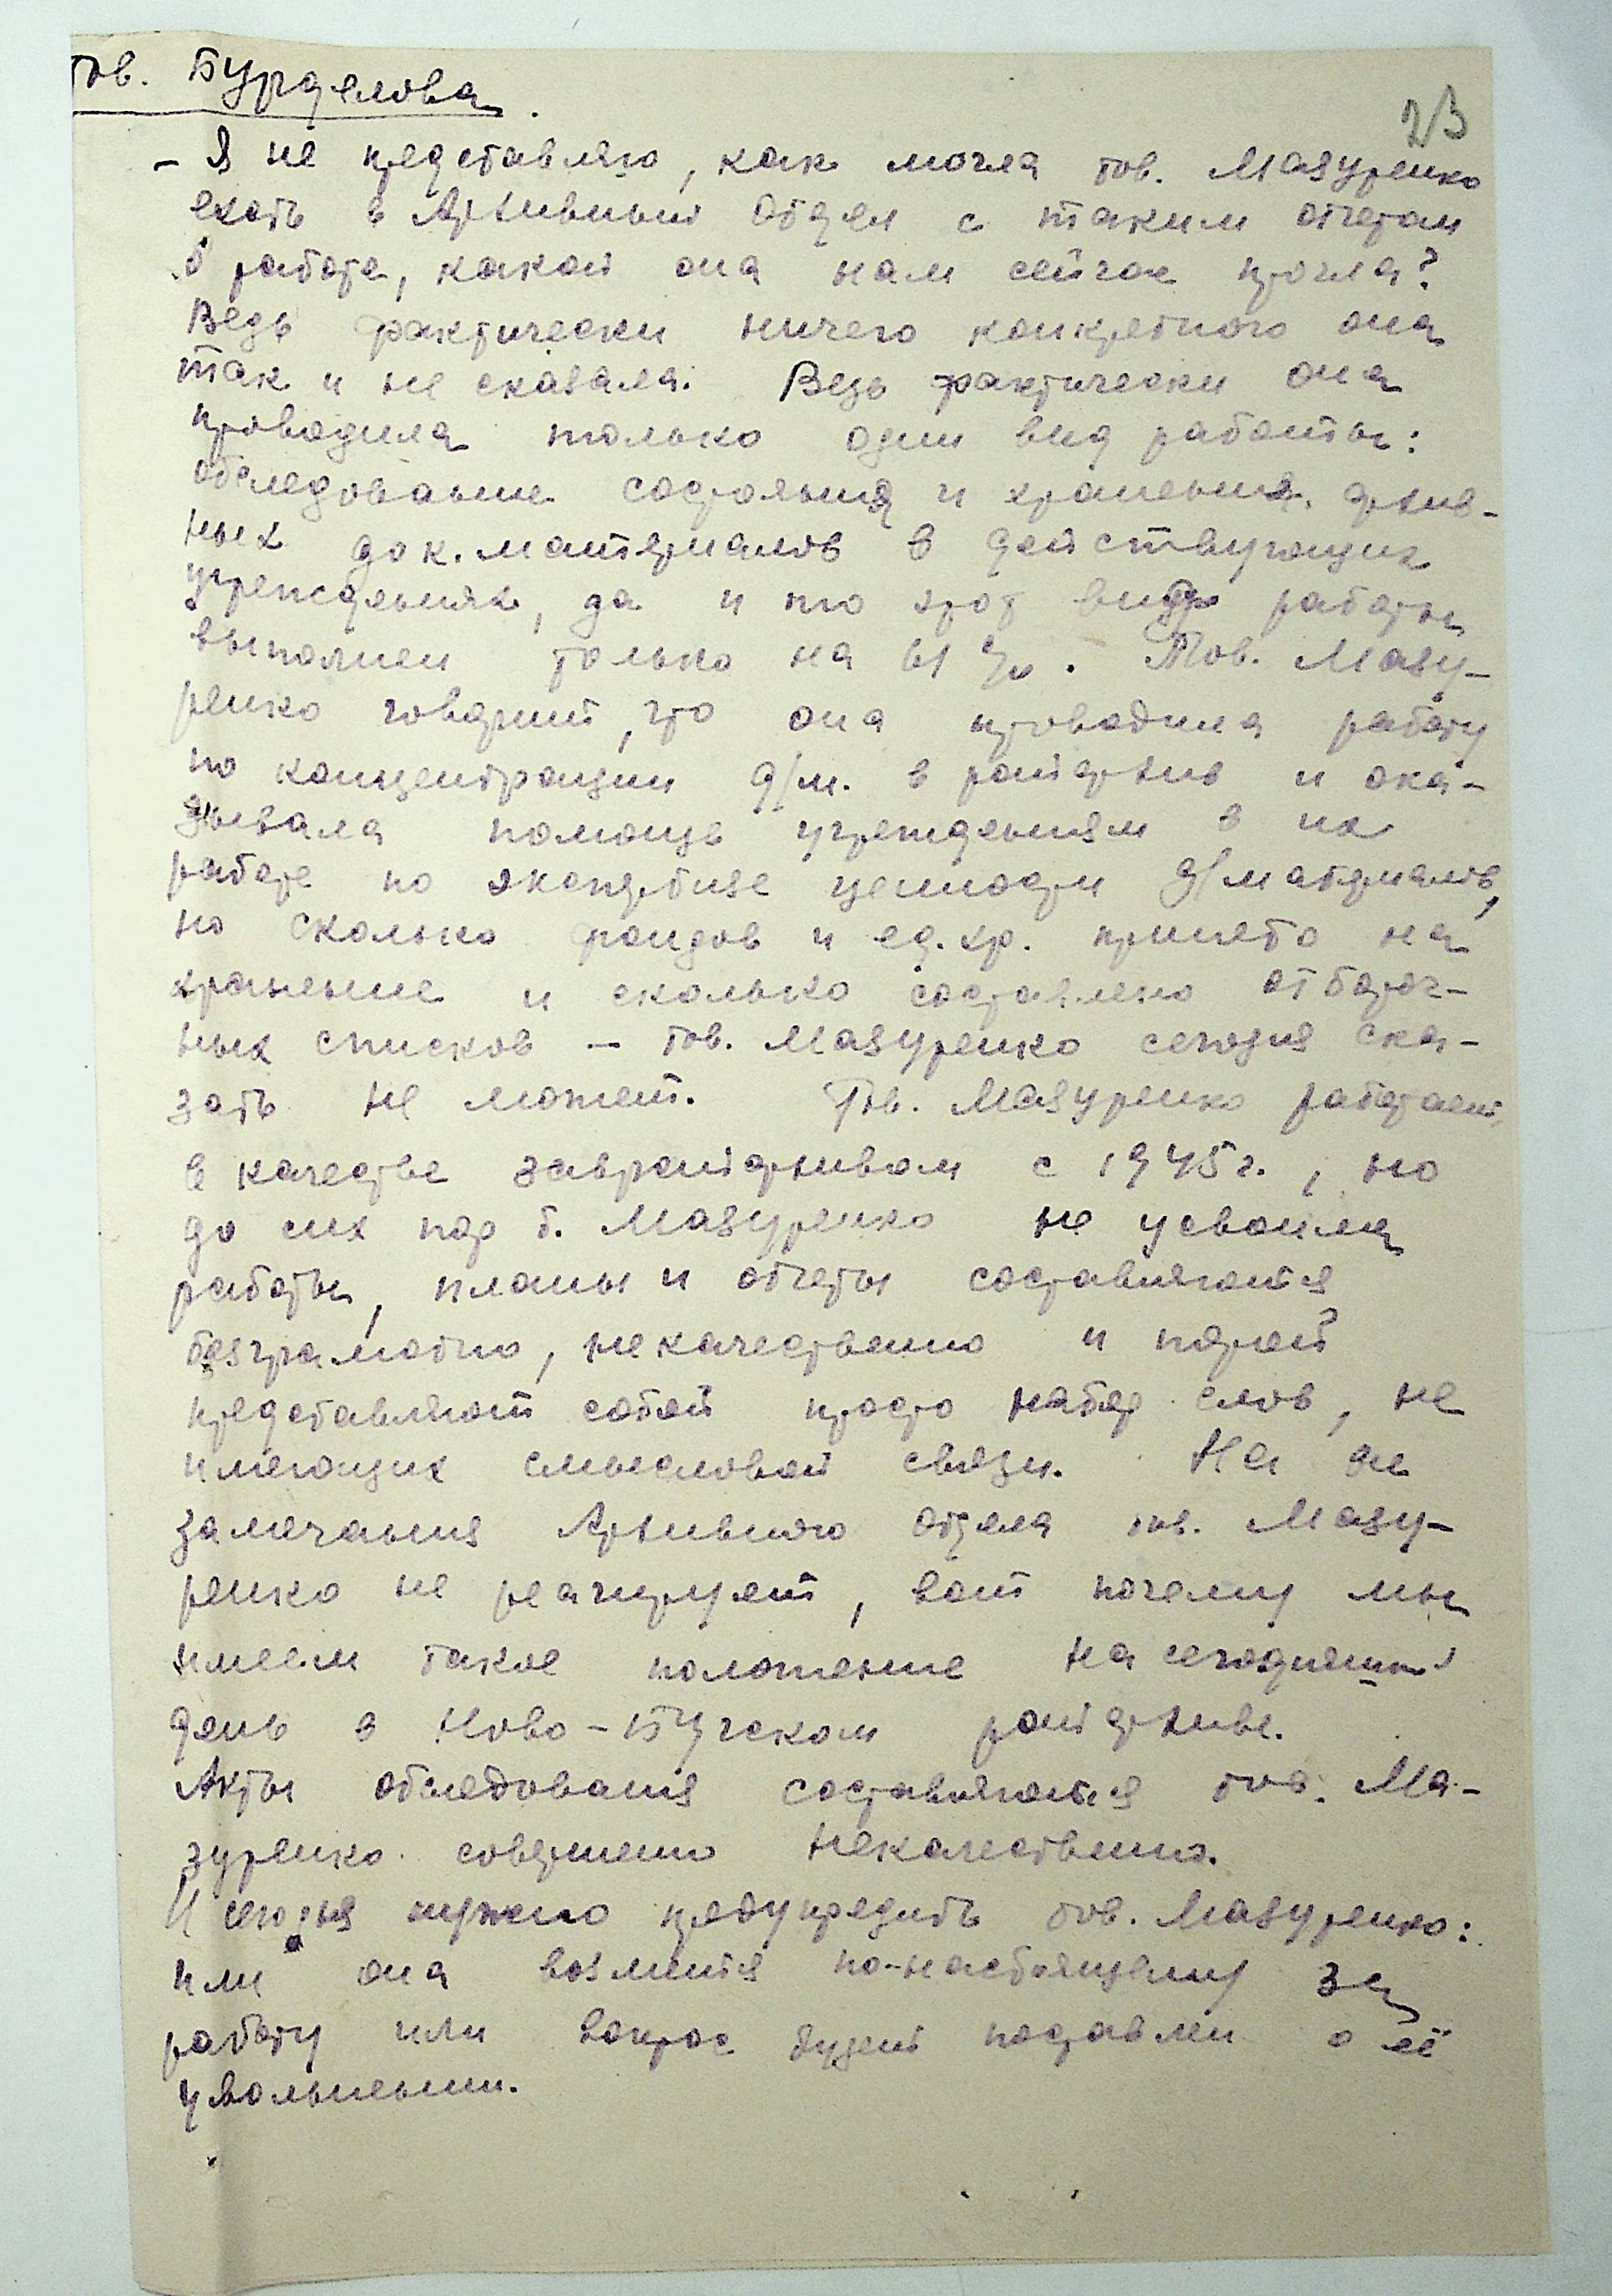 тов. Бурделова.
23
– Я не представляю, как могла тов. Мазуренко
ехать в Архивный отдел с таким отчетом
о работе, какой она нам сейчас прочла?
Ведь фактически ничего конкретного она
так и не сказала. Ведь фактически она
проводила только один вид работы:
обследование состояния и хранения архив-
ных док. материалов в действующих
учреждениях, да и то этот вид работы
выполнен только на 61%. Тов. Мазу-
ренко говорит, что она проводила работу
по концентрации д/м. в райархив и ока-
зывала помощь учреждениям в их
работе по экспертизе ценности д/материалов,
но сколько фондов и ед. хр. принято на
хранение и сколько составлено отбороч-
ных списков – тов. Мазуренко сегодня ска-
зать не может. Тов. Мазуренко работает
в качестве заврайархивом с 1945 г., но
до сих пор т. Мазуренко не усвоила
работы, планы и отчеты составляются
безграмотно, некачественно и порой
представляют собой просто набор слов, не
имеющих смысловой связи. На все
замечания Архивного отдела тов. Мазу-
ренко не реагирует, вот почему мы
имеем такое положение на сегодняшний
день в Ново-Бугском райархиве.
Акты обследования составляются тов. Ма-
зуренко совершенно некачественно.
И сегодня нужно предупредить тов. Мазуренко:
или она возмется по-настоящему за
работу или вопрос будет поставлен о её
увольнении.